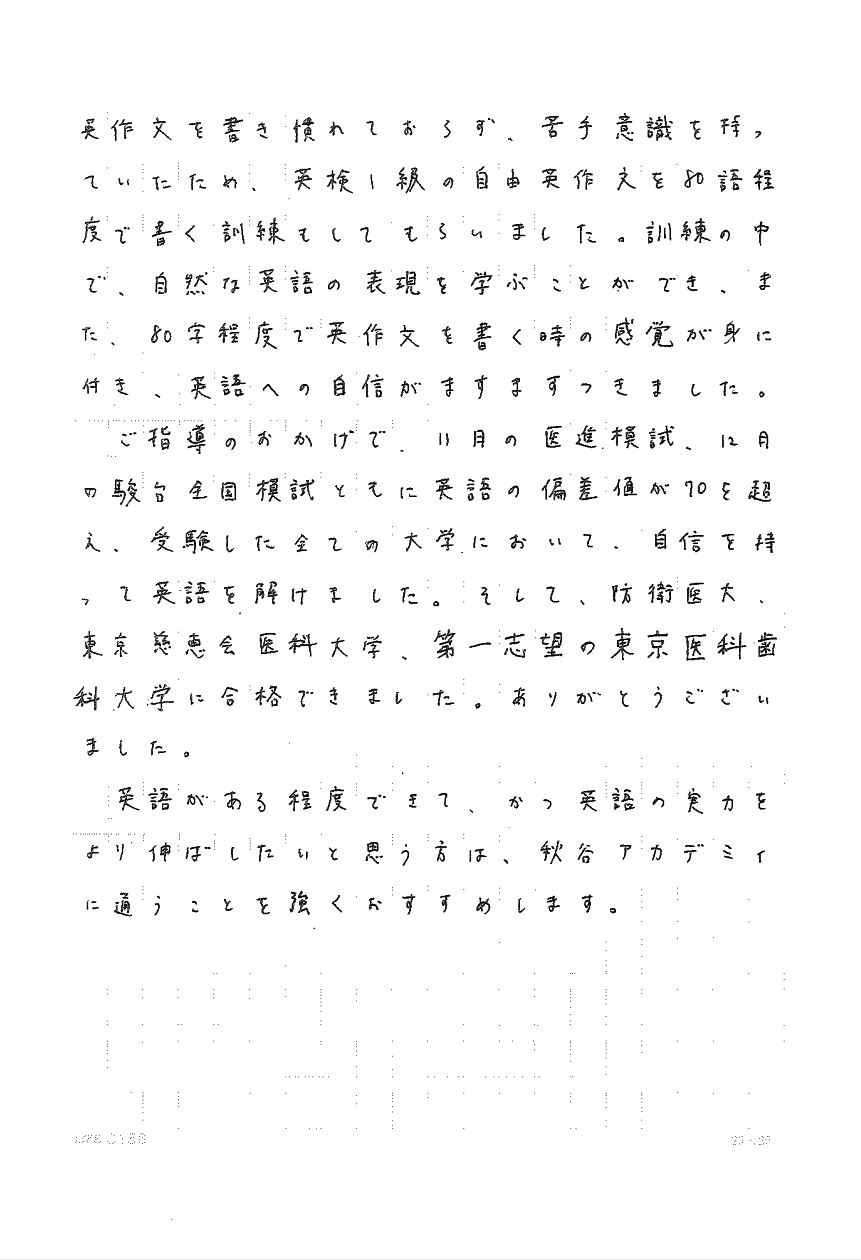 英作文を書き慣れておらず、苦手意識を持っ
ていたため、英検1級の自由英作文を80語程
度で書く訓練もしてもらいました。訓練の中
で、自然な英語の表現を学ぶことができ、ま
た、80字程度で英作文を書く時の感覚が身に
付き、英語への自信がますますつきました。
ご指導のおかげで、11月の医進模試、12月
の駿台全国模試ともに英語の偏差値が70を超
え、受験した全ての大学において、自信を持
って英語を解けました。そして、防衛医大、
東京慈恵会医科大学、第一志望の東京医科歯
科大学に合格できました。ありがとうござい
ました。
英語がある程度できて、かつ英語の実力を
より伸ばしたいと思う方は、秋谷アカデミィ
に通うことを強くおすすめします。